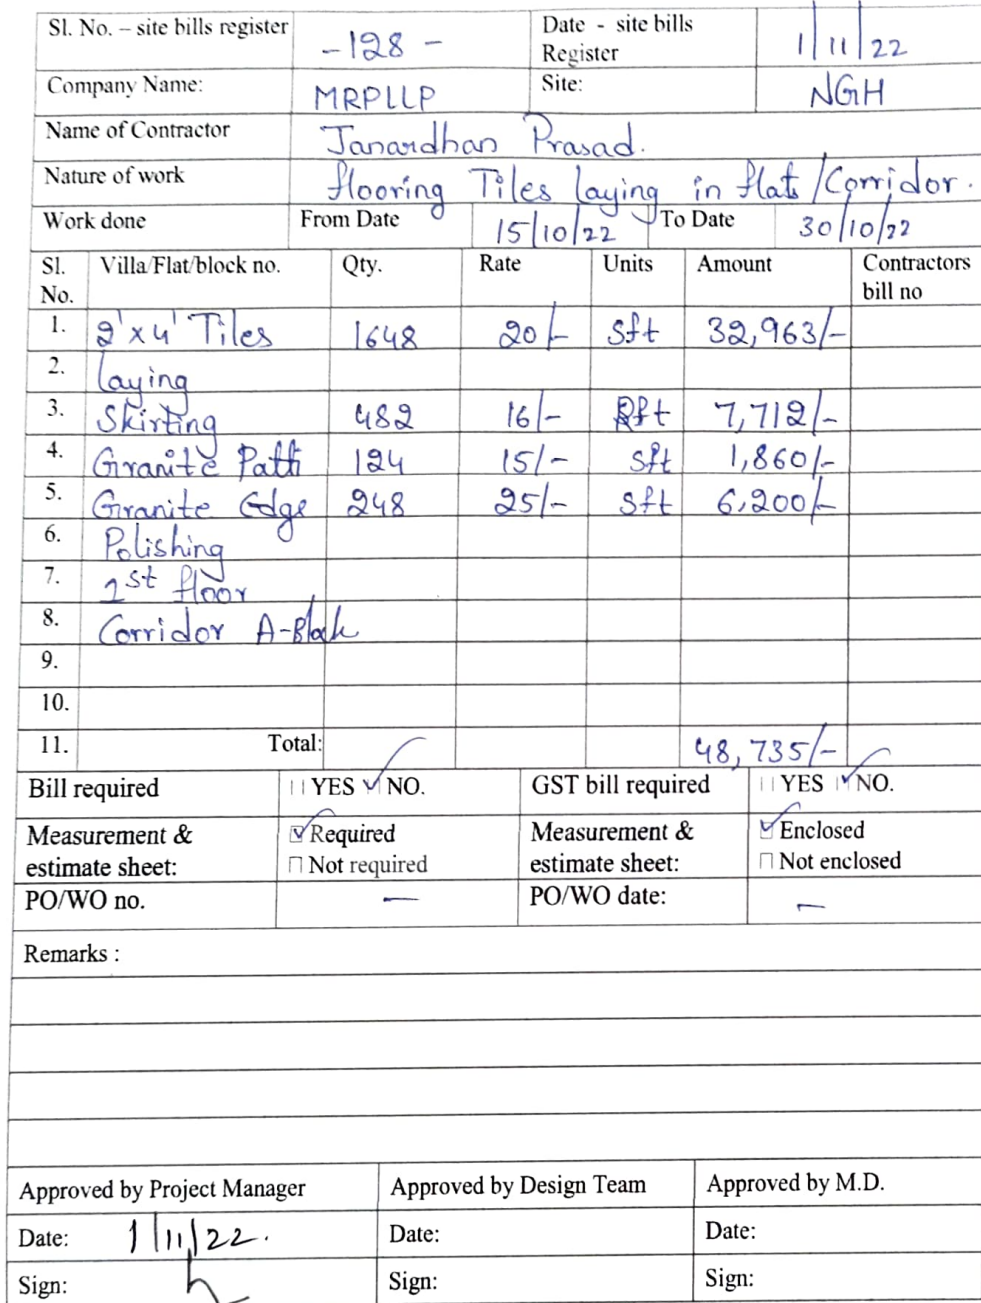 Sl. No. – site bills register -128- Date - site bills Register 1/11/22
Company Name: MRPLLP Site: NGH
Name of Contractor Janardhan Prasad.
Nature of work flooring Tiles laying in flats/Corridor.
Work done From Date 15/10/22 To Date 30/10/22
Sl. No. Villa/Flat/block no. Qty. Rate Units Amount Contractors bill no
1. 2'x4' Tiles 1648 20/- Sft 32,963/-
2. laying
3. Skirting 482 16/- Rft 7,712/-
4. Granite Patti 124 15/- Sft 1,860/-
5. Granite Edge 248 25/- Sft 6,200/-
6. Polishing
7. 1st floor
8. Corridor A-Block
9.
10.
11. Total: 48,735/-
Bill required YES NO. GST bill required YES NO.
Measurement & estimate sheet: Required Not required Measurement & estimate sheet: Enclosed Not enclosed
PO/WO no. – PO/WO date: –
Remarks :
Approved by Project Manager Approved by Design Team Approved by M.D.
Date: 1/11/22. Date: Date:
Sign: Sign: Sign: